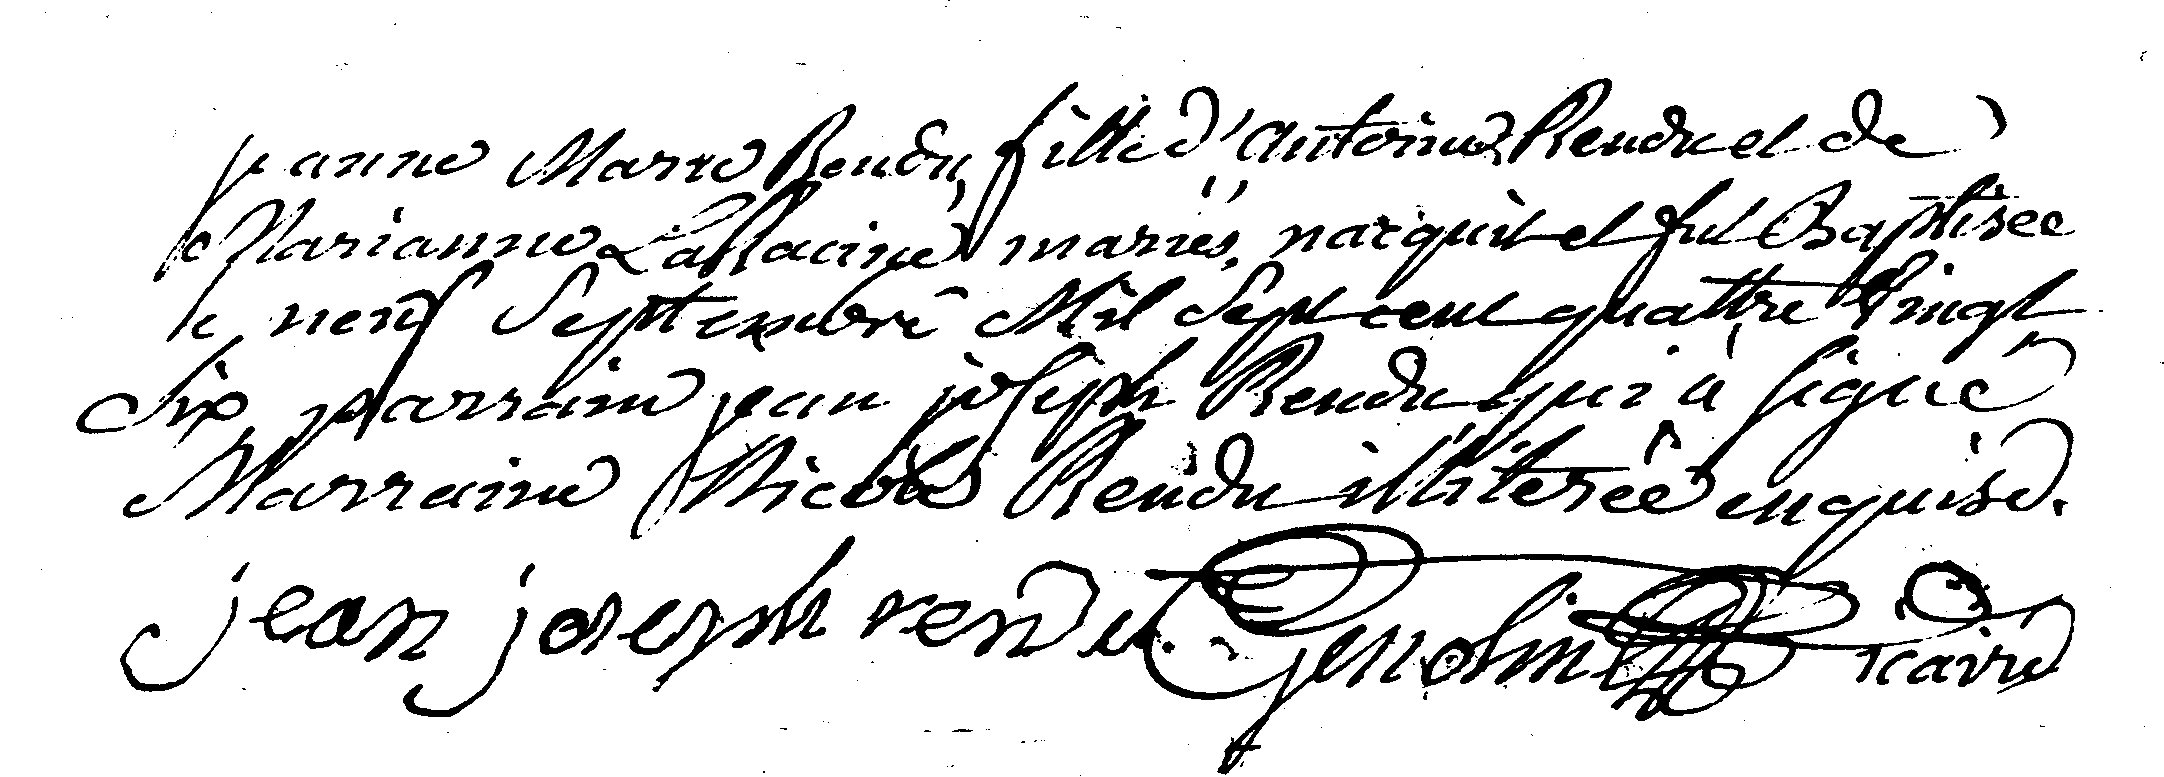 jeanne Marie Rendu, fille d'antoine Rendu et de
Marianne LaRacine mariés, nacquit et fut Baptisee
le neuf Septembre Mil Sept cent quattre Vingt
Six parrain jean joseph Rendu qui à signé
Marraine Nicole Rendu illiterée enquise.
jean joseph rendu Genolin vicaire